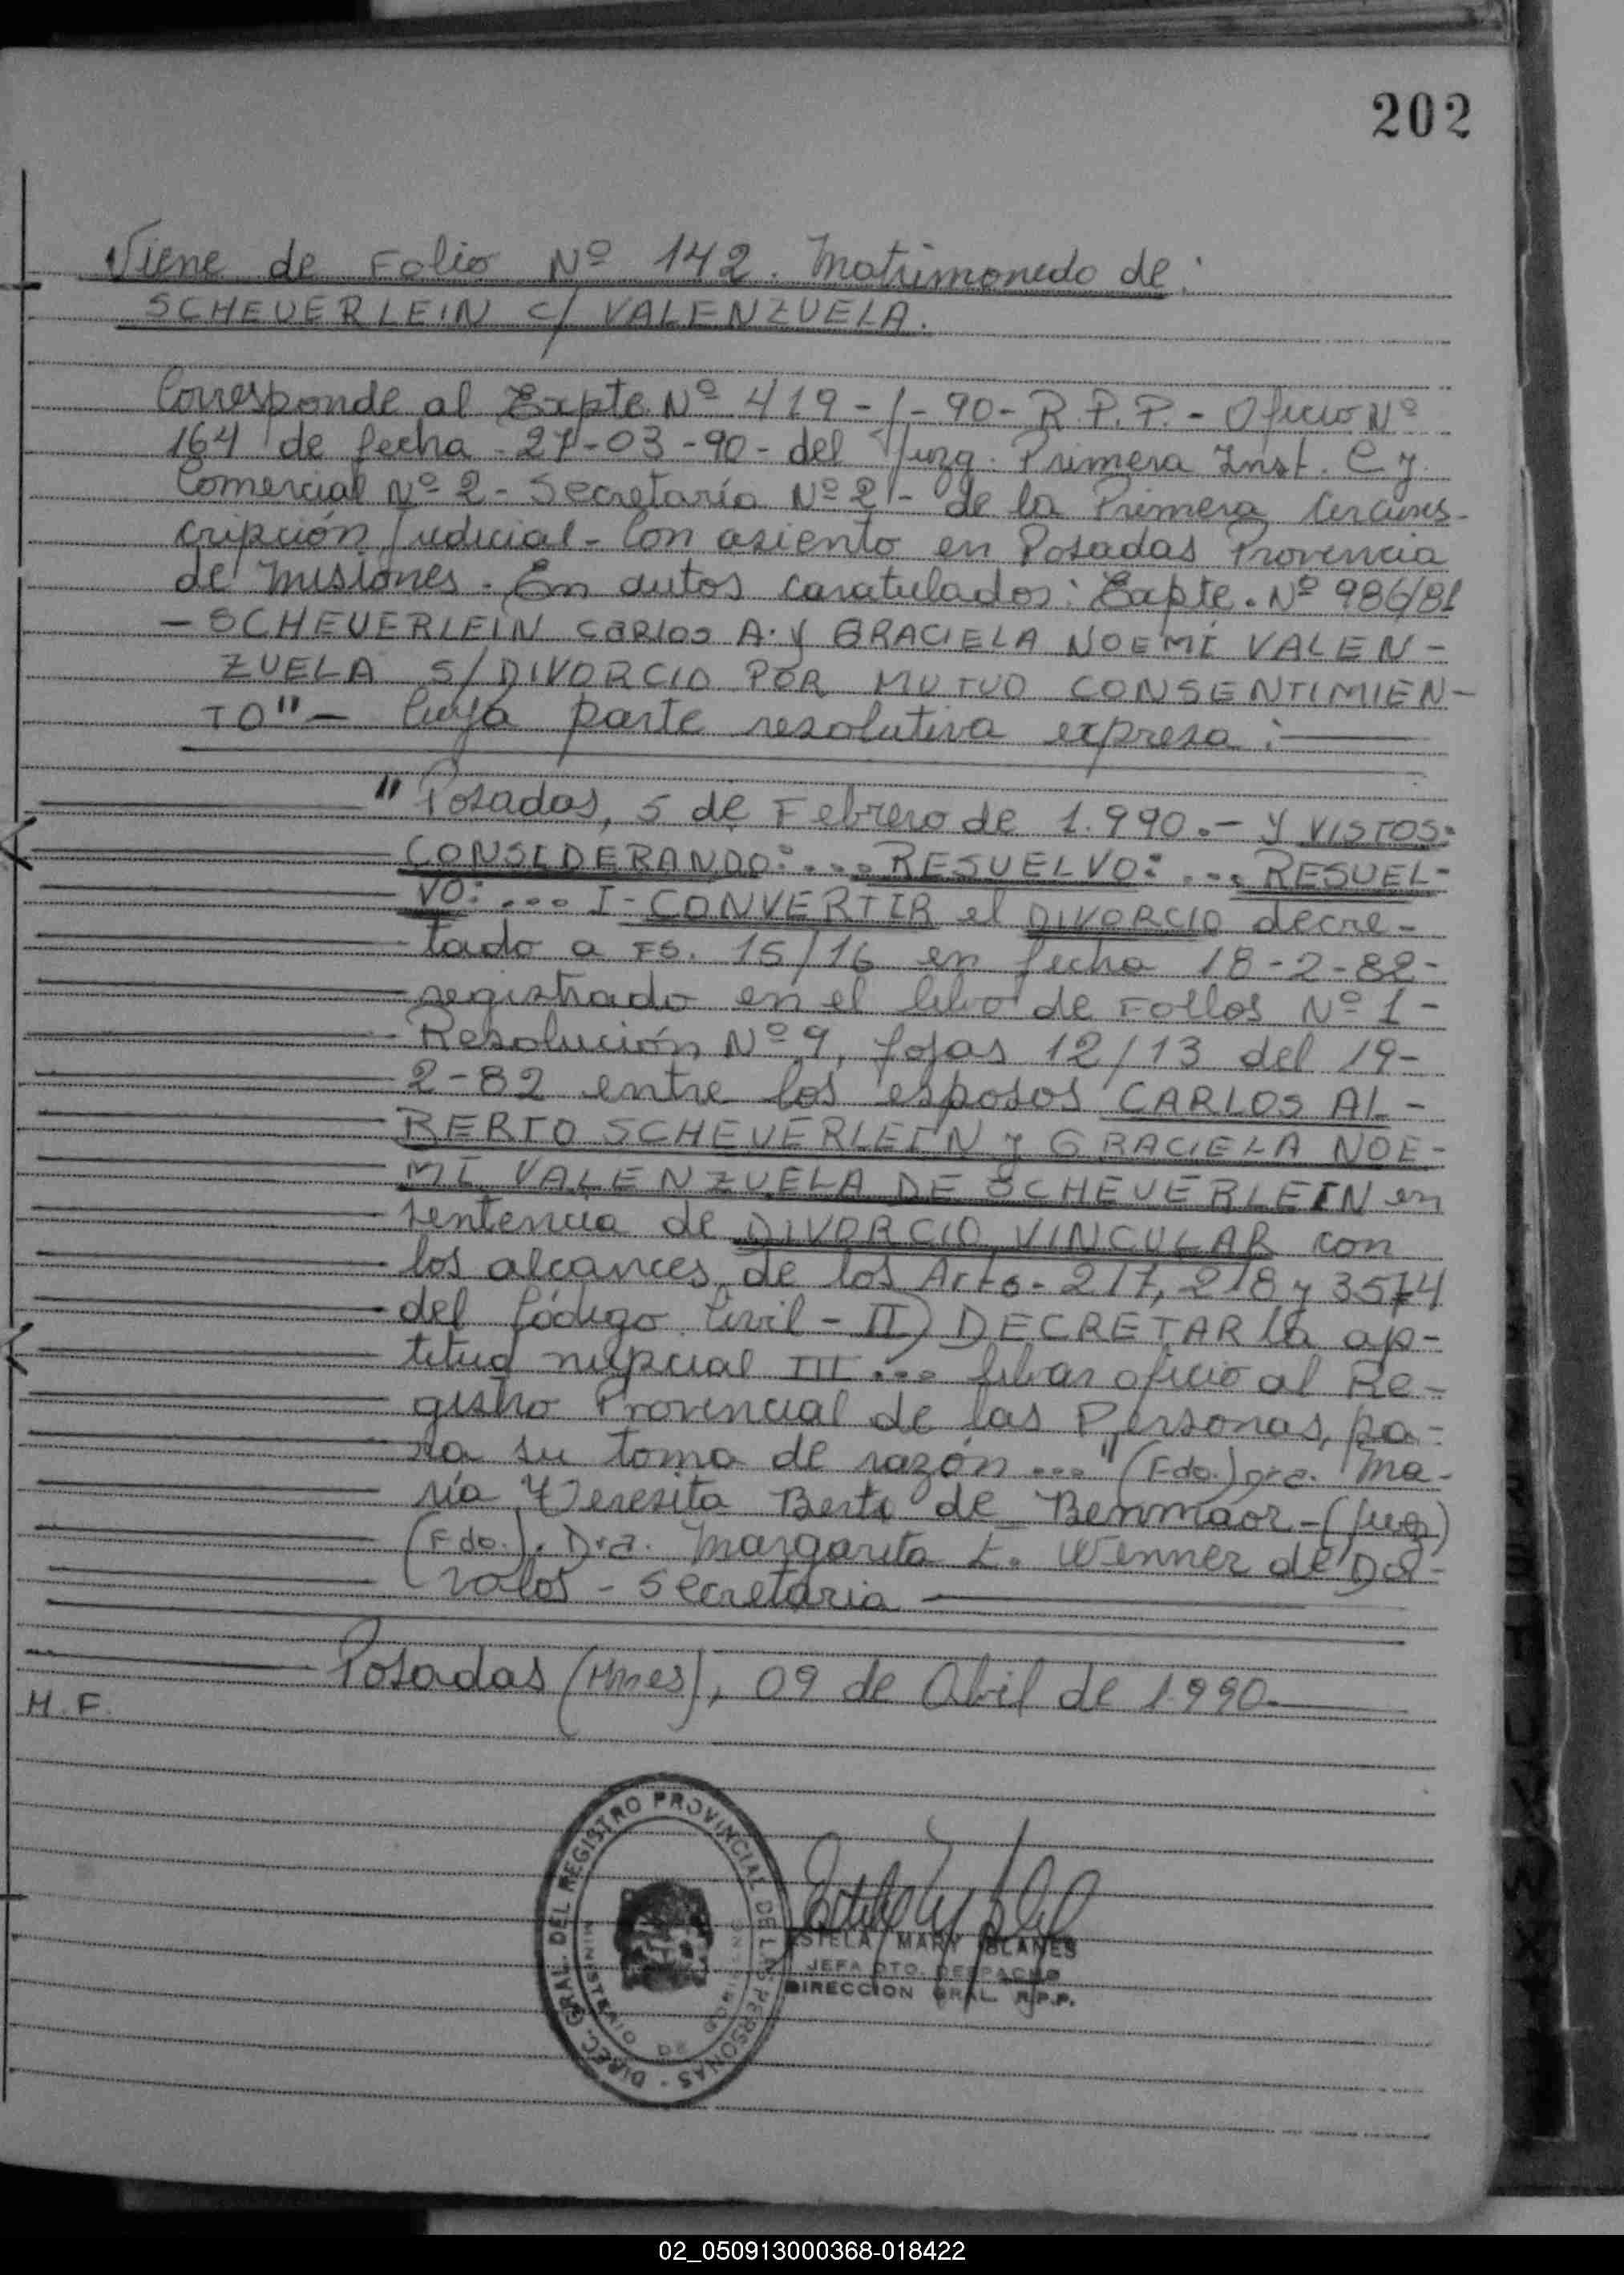 202
Viene de Folio Nº 142. Matrimonedo de:
SCHEUERLEIN C/ VALENZUELA.
Corresponde al Expte Nº 419-J-90- R.P.P.- Oficio Nº
164 de fecha 27-03-90- del Juzg. Primera Inst. C y.
Comercial Nº 2- Secretaría Nº 2- de la Primera Circuns-
cripción Judicial- Con asiento en Posadas Provincia
de Misiones. En autos caratulados: Expte. Nº 986/81
- SCHEUERLEIN CARLOS A. Y GRACIELA NOEMÍ VALEN-
ZUELA S/ DIVORCIO POR MUTUO CONSENTIMIEN-
TO"- Cuya parte resolutiva expresa:
"Posadas, 5 de Febrero de 1.990.- Y VISTOS:
CONSIDERANDO:... RESUELVO:... RESUEL-
VO:.... I- CONVERTIR el DIVORCIO decre-
tado a FS. 15/16 en fecha 18-2-82-
registrado en el libro de Follos Nº 1-
Resolución Nº 9, fojas 12/13 del 19-
2-82 entre los esposos CARLOS AL-
BERTO SCHEUERLEIN y GRACIELA NOE-
MÍ VALENZUELA DE SCHEUERLEIN en
sentencia de DIVORCIO VINCULAR con
los alcances de los Arts. 217, 218 y 3574
del Código Civil- II) DECRETAR la ap-
titud nupcial III... librar oficio al Re-
gistro Provincial de las Personas, pa-
ra su toma de razón..." (Fdo.) Dra. Ma-
ría Teresita Berti de Benmaor-(Juez)
(Fdo.). Dra. Margarita E. Wenner de Da-
valos - Secretaria
Posadas (Mnes), 09 de Abril de 1990.
H.F.
DIREC. GRAL. DEL REGISTRO PROVINCIAL DE LAS PERSONAS
MINISTERIO DE GOBIERNO
ESTELA MARY BLANES
JEFA DTO. DESPACHO
DIRECCION GRAL. R.P.P.
02_050913000368-018422